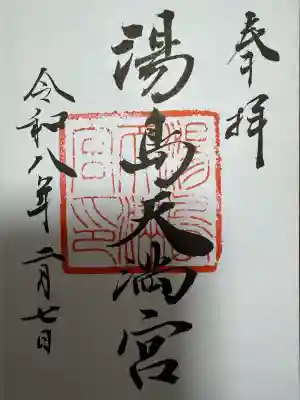 奉拝
湯島天満宮
令和八年二月七日